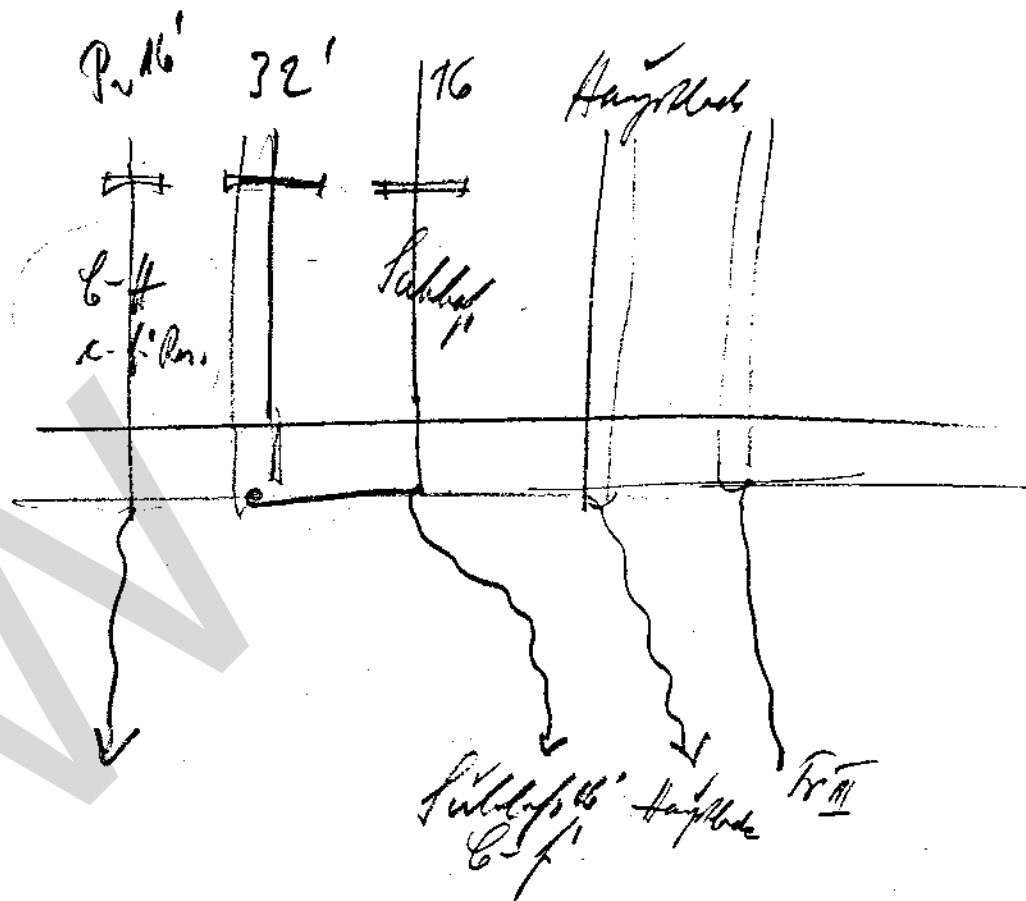 Pr 16'
32'
16
Hauptlade
C-H
Subbaß
c-f'
Subbaß 16'
C-f'
Hauptlade
Tr III